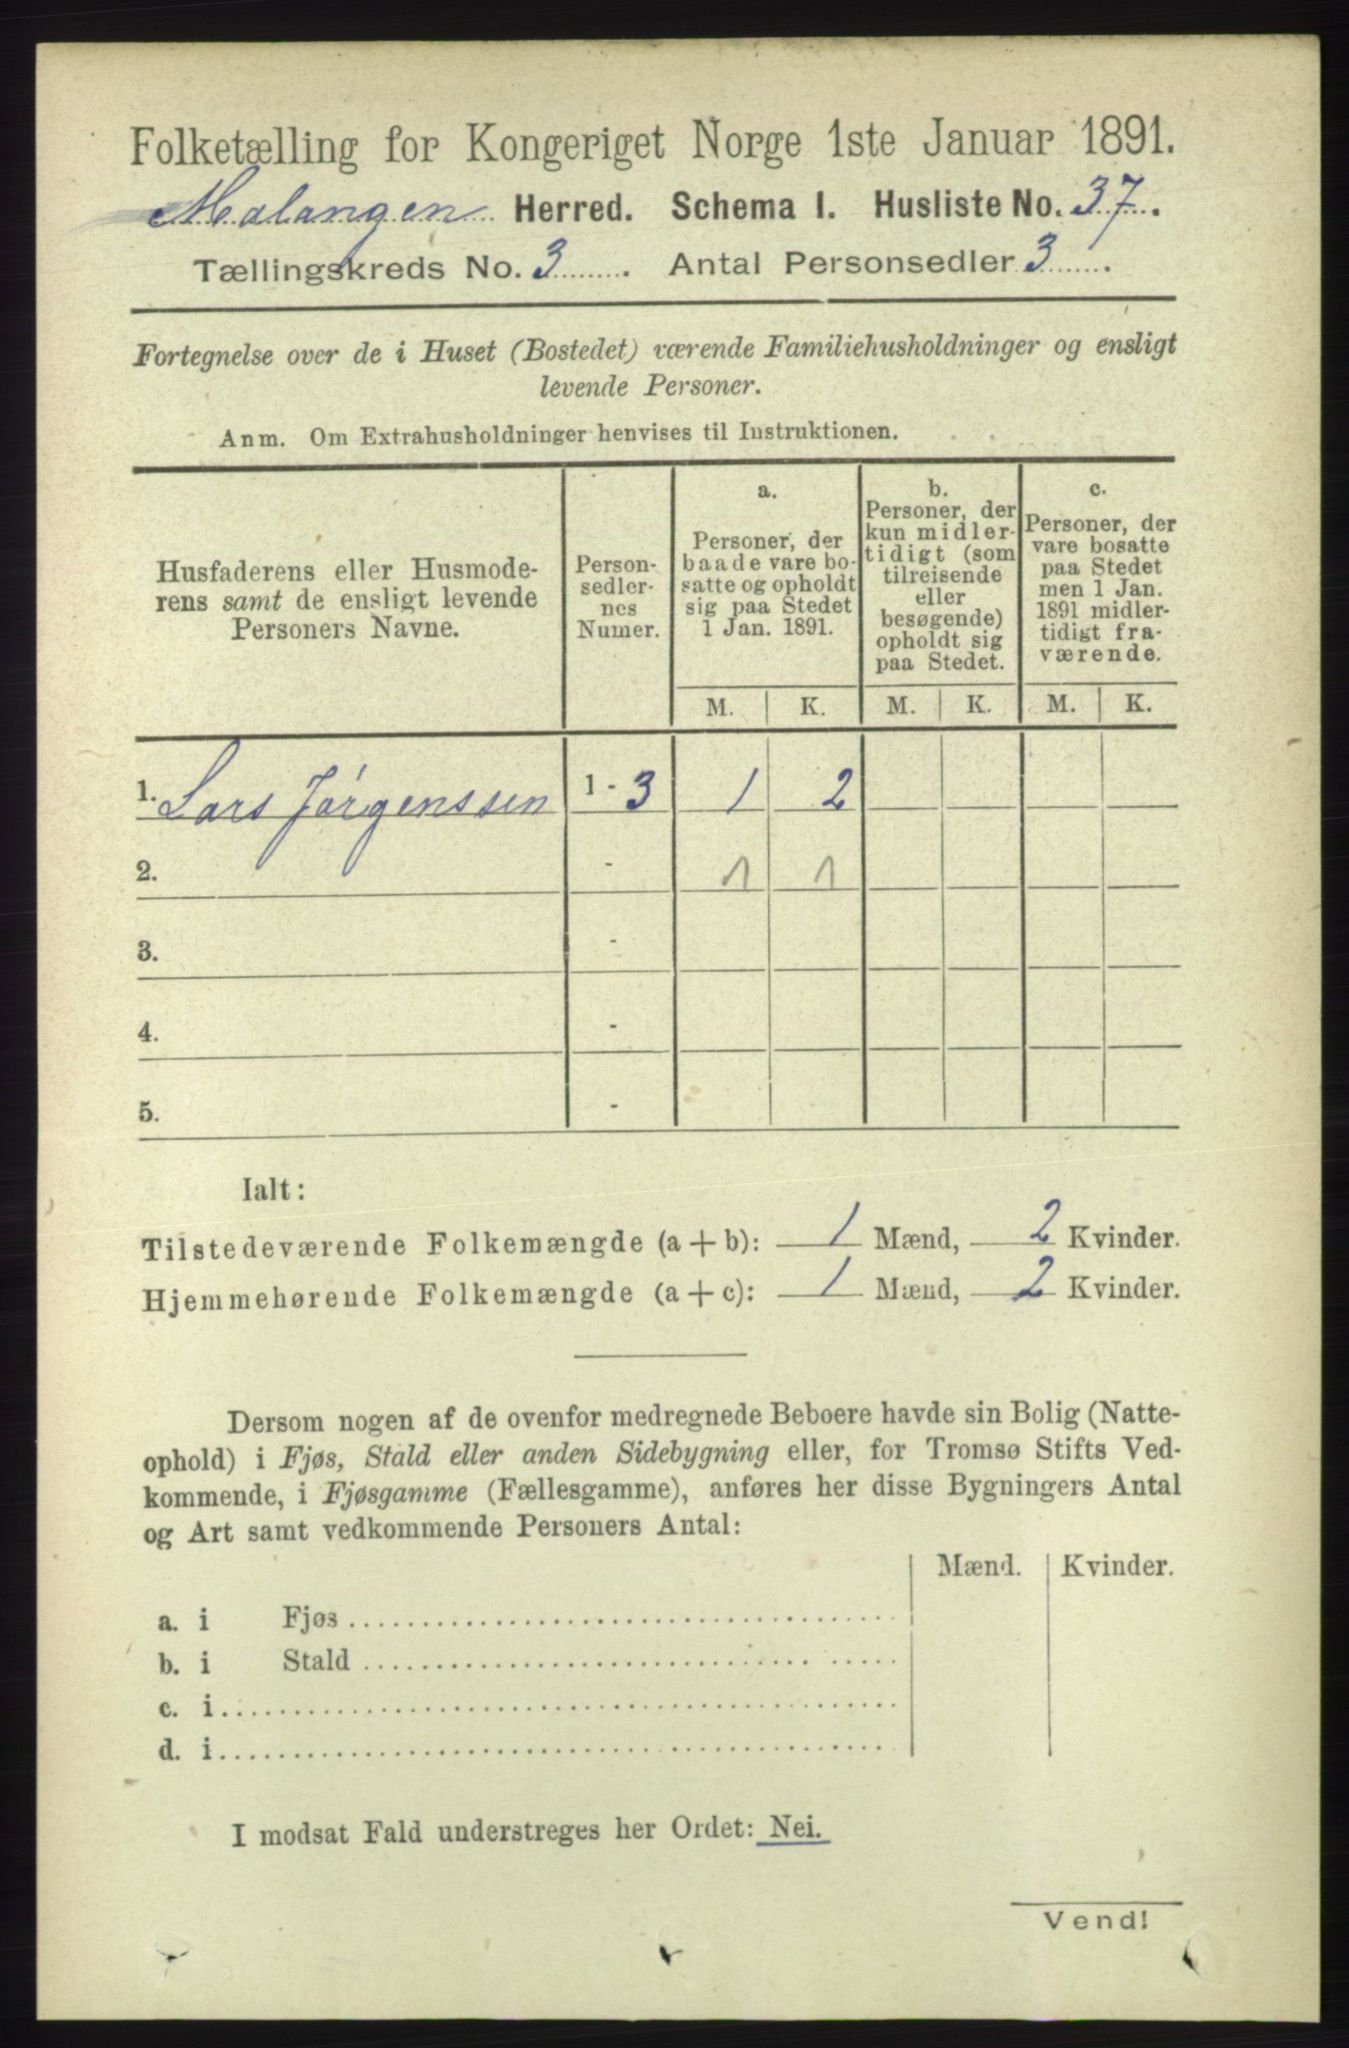 Folketælling for Kongeriget Norge 1ste Januar 1891.
Malangen Herred. Schema I. Husliste No. 37.
Tællingskreds No. 3. Antal Personsedler 3.
Fortegnelse over de i Huset (Bostedet) værende Familiehusholdninger og ensligt
levende Personer.
Anm. Om Extrahusholdninger henvises til Instruktionen.
Husfaderens eller Husmode-
rens samt de ensligt levende
Personers Navne.
Person-
sedler-
nes
Numer.
a.
Personer, der
baade vare bo-
satte og opholdt
sig paa Stedet
1 Jan. 1891.
b.
Personer, der
kun midler-
tidigt (som
tilreisende
eller
besøgende)
opholdt sig
paa Stedet.
c.
Personer, der
vare bosatte
paa Stedet
men 1 Jan.
1891 midler-
tidigt fra-
værende.
M. K. M. K. M. K.
1. Lars Jørgenssen 1 - 3 1 2
2. - 1 1
3. -
4. -
5. -
Ialt:
Tilstedeværende Folkemængde (a + b): 1 Mænd, 2 Kvinder.
Hjemmehørende Folkemængde (a + c): 1 Mænd, 2 Kvinder.
Dersom nogen af de ovenfor medregnede Beboere havde sin Bolig (Natte-
ophold) i Fjøs, Stald eller anden Sidebygning eller, for Tromsø Stifts Ved-
kommende, i Fjøsgamme (Fællesgamme), anføres her disse Bygningers Antal
og Art samt vedkommende Personers Antal:
Mænd. Kvinder.
a. i Fjøs
b. i Stald
c. i
d. i
I modsat Fald understreges her Ordet: Nei.
Vend!